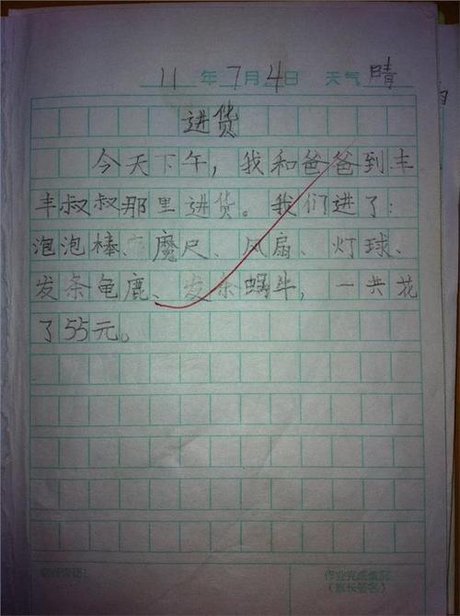 11 年 7 月 4 日 天气 晴
进货
今天下午，我和爸爸到丰
丰叔叔那里进货。我们进了：
泡泡棒、魔尺、风扇、灯球、
发条龟鹿、发条蜗牛，一共花
了55元。
作业完成情况
（家长签名）